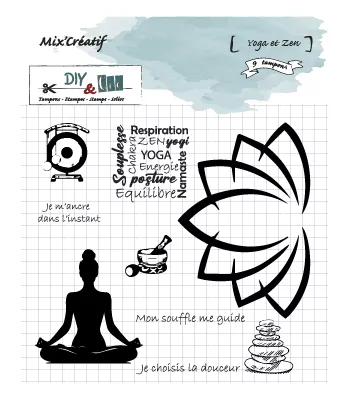 Mix'Créatif
[ Yoga et Zen ]
9 tampons
DIY
& Cie
Tampons - Etampes - stamps - sellos
Souplesse
Respiration
Chakra
ZEN yogi
YOGA
Energie
posture
Equilibre
Namaste
Je m'ancre
dans l'instant
Mon souffle me guide
Je choisis la douceur